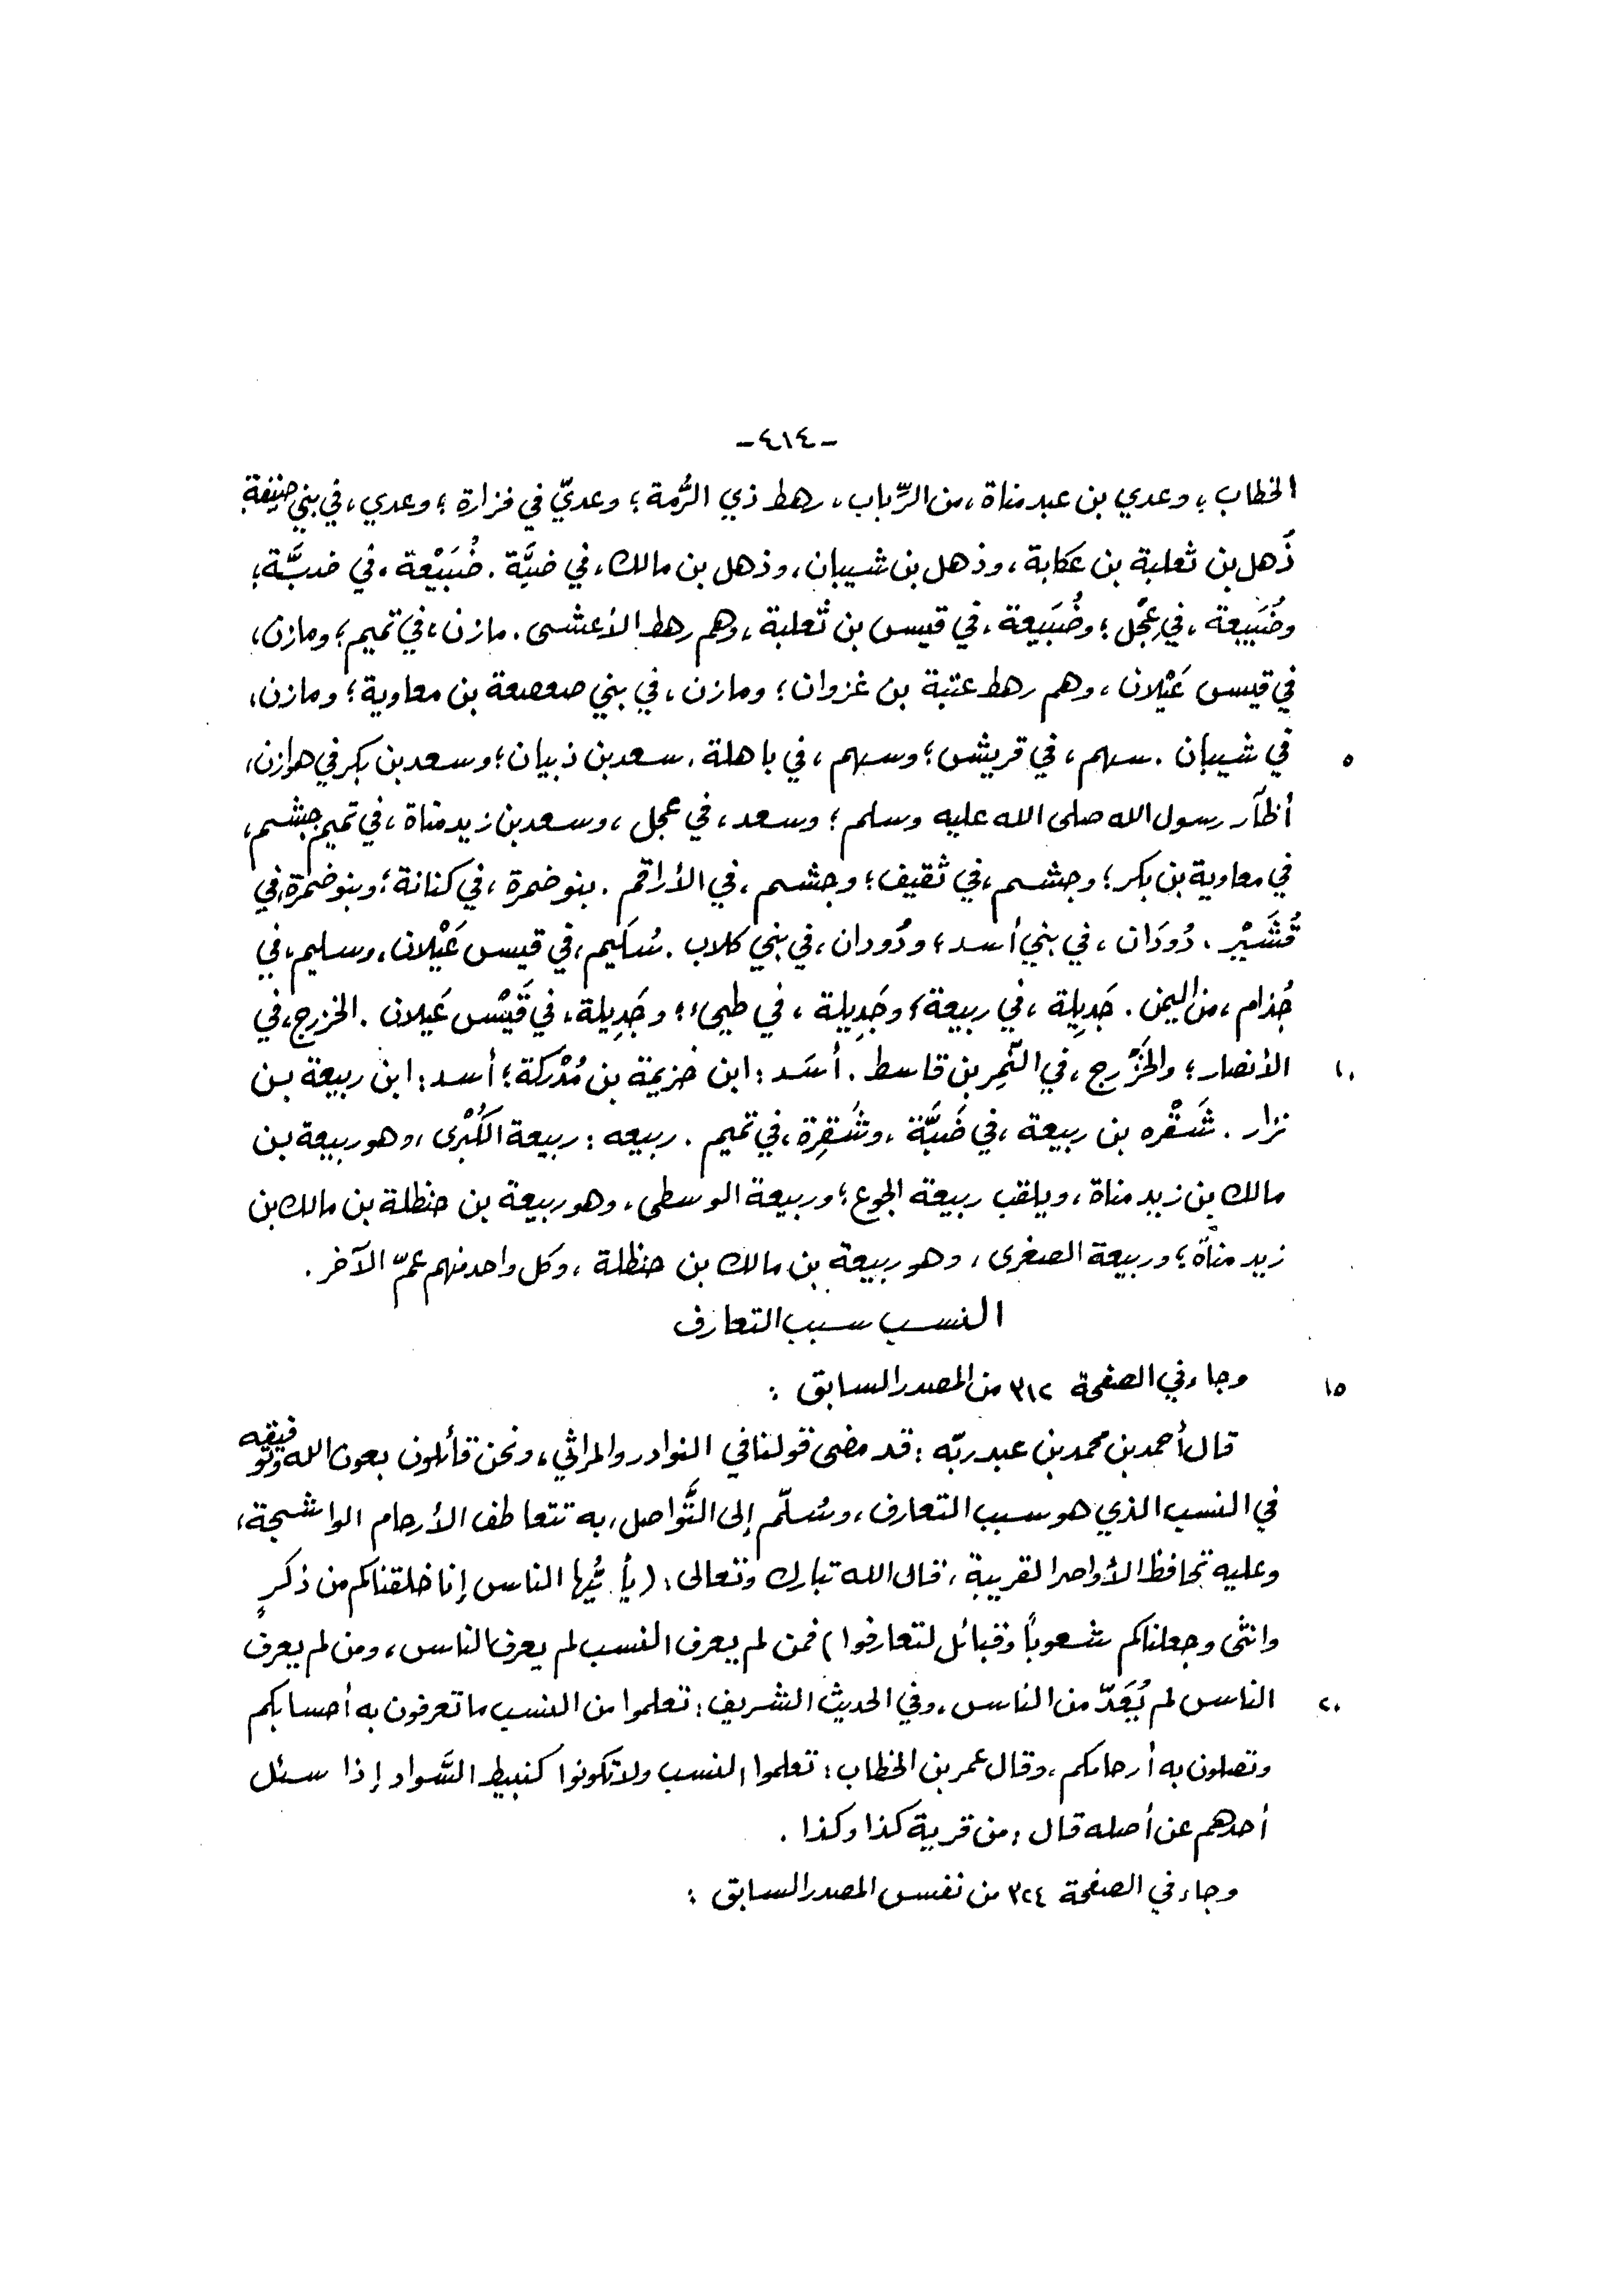 -٤١٤-
الخطاب؛ وعدي بن عبد مناة، من الرِّباب، رهط ذي الرُّمة؛ وعديّ في فزارة؛ وعدي، في بني حنيفة.
ذُهل بن ثعلبة بن عكابة، وذهل بن شيبان، وذهل بن مالك، في ضبَّة. ضُبَيْعة، في ضبَّة؛
وضُبَيعة، في عِجْل؛ وضُبَيعة، في قيس بن ثعلبة، وهم رهط الأعشى. مازن، في تميم؛ ومازن،
في قيس عَيْلان، وهم رهط عتبة بن غزوان؛ ومازن، في بني صعصعة بن معاوية؛ ومازن،
٥ في شيبان. سهم، في قريش؛ وسهم، في باهلة. سعد بن ذبيان؛ وسعد بن بكر في هوازن،
أظآر رسول الله صلى الله عليه وسلم؛ وسعد، في عجل، وسعد بن زيد مناة، في تميم. جشم،
في معاوية بن بكر؛ وجشم، في ثقيف؛ وجشم، في الأراقم. بنو ضمرة، في كنانة؛ وبنو ضمرة، في
قُشَيْر. دُودَان، في بني أسد؛ ودُودان، في بني كلاب. سُلَيم، في قيس عَيْلان، وسليم، في
جُذام، من اليمن. جَدِيلة، في ربيعة؛ وجَدِيلة، في طيىء؛ وجَدِيلة، في قَيْس عَيلان. الخزرج، في
١٠ الأنصار؛ والخَزْرج، في النَّمِر بن قاسط. أسَد: ابن خزيمة بن مُدْركة؛ أسد: ابن ربيعة بن
نزار. شَقْره بن ربيعة، في ضَبَّة، وشَقِرة، في تميم. ربيعه: ربيعة الكُبْرى، وهو ربيعة بن
مالك بن زيد مناة، ويلقب ربيعة الجوع؛ وربيعة الوسطى، وهو ربيعة بن حنظلة بن مالك بن
زيد مناة؛ وربيعة الصغرى، وهو ربيعة بن مالك بن حنظلة، وكل واحد منهم عمّ الآخر.
النسب سبب التعارف
١٥ وجاء في الصفحة ٣١٢ من المصدر السابق:
قال أحمد بن محمد بن عبد ربّه: قد مضى قولنا في النوادر والمراثي، ونحن قائلون بعون الله وتوفيقه
في النسب الذي هو سبب التعارف، وسُلّم إلى التَّواصل، به تتعاطف الأرحام الواشجة،
وعليه تحافظ الأواصر القريبة، قال الله تبارك وتعالى: (يأيُّها الناس إنا خلقناكم من ذكرٍ
وانثى وجعلناكم شعوباً وقبائل لتعارفوا) فمن لم يعرف النسب لم يعرف الناس، ومن لم يعرف
٢٠ الناس لم يُعَدّ من الناس، وفي الحديث الشريف: تعلموا من النسب ما تعرفون به أحسابكم
وتصلون به أرحامكم، وقال عمر بن الخطاب: تعلموا النسب ولا تكونوا كنبيط السَّواد إذا سئل
أحدهم عن أصله قال: من قرية كذا وكذا.
وجاء في الصفحة ٣٢٤ من نفس المصدر السابق: